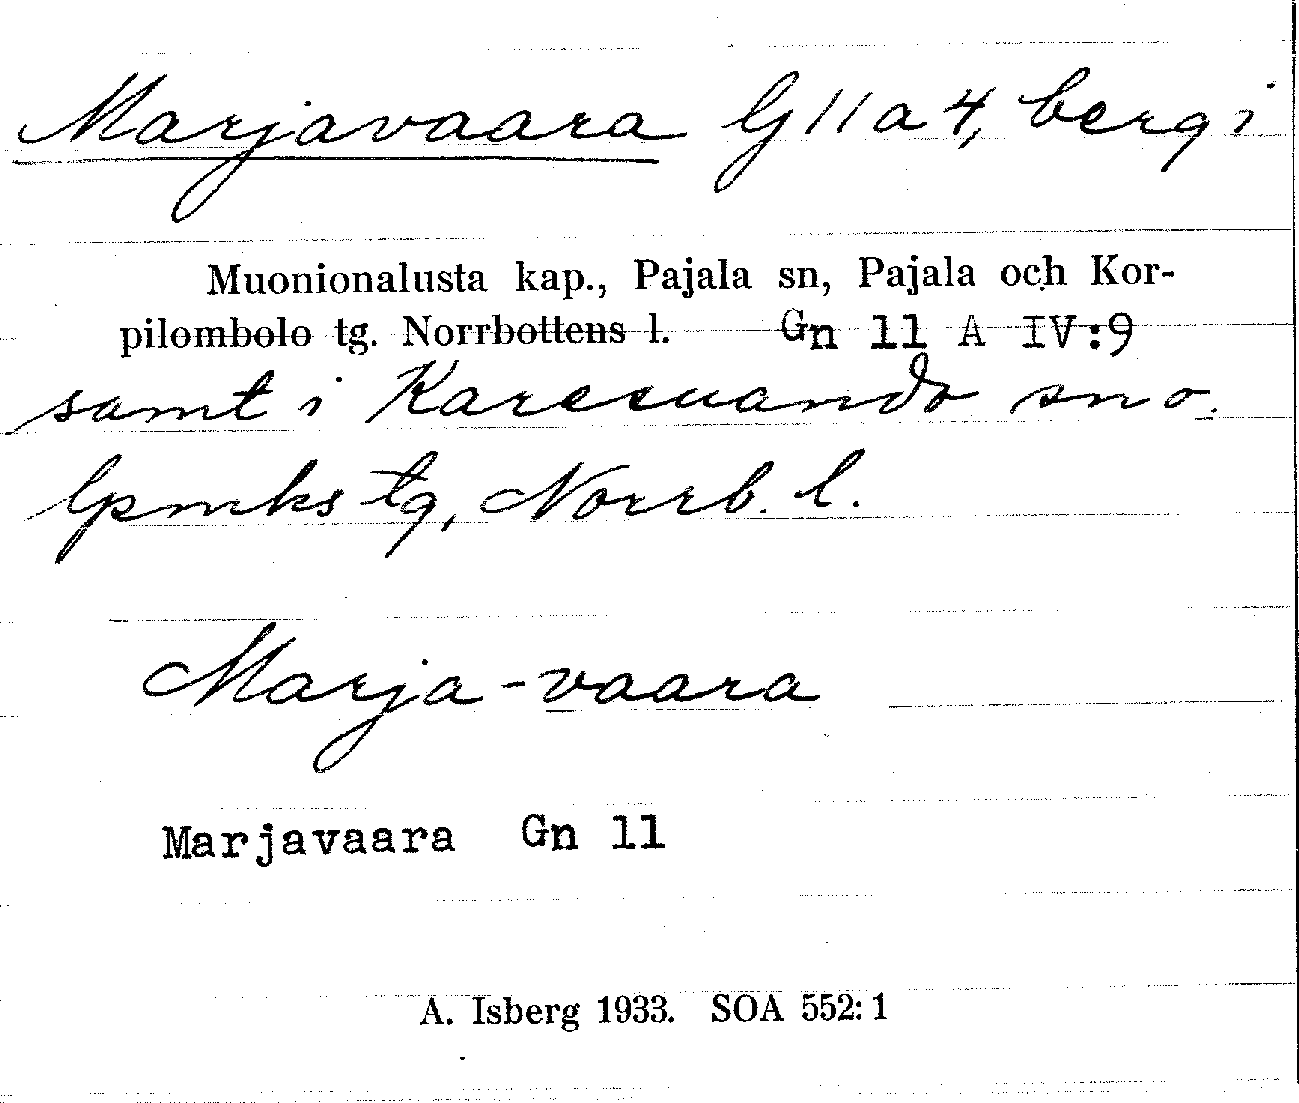 Marjavaara G 11 a 4, berg i
Muonionalusta kap., Pajala sn, Pajala och Kor-
pilombolo tg. Norrbottens l. Gn 11 A IV:9
samt i Karesuando sn o.
lpmks tg, Norrb. l.
Marja-vaara
Marjavaara Gn 11
A. Isberg 1933. SOA 552:1